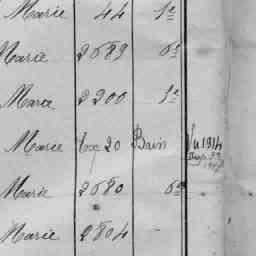 Marie 44 1e
Marie 2689 6e
Marie 2200 1e
Marie 20 Bain Vu 1914
Marie 2680 6e
Marie 2804